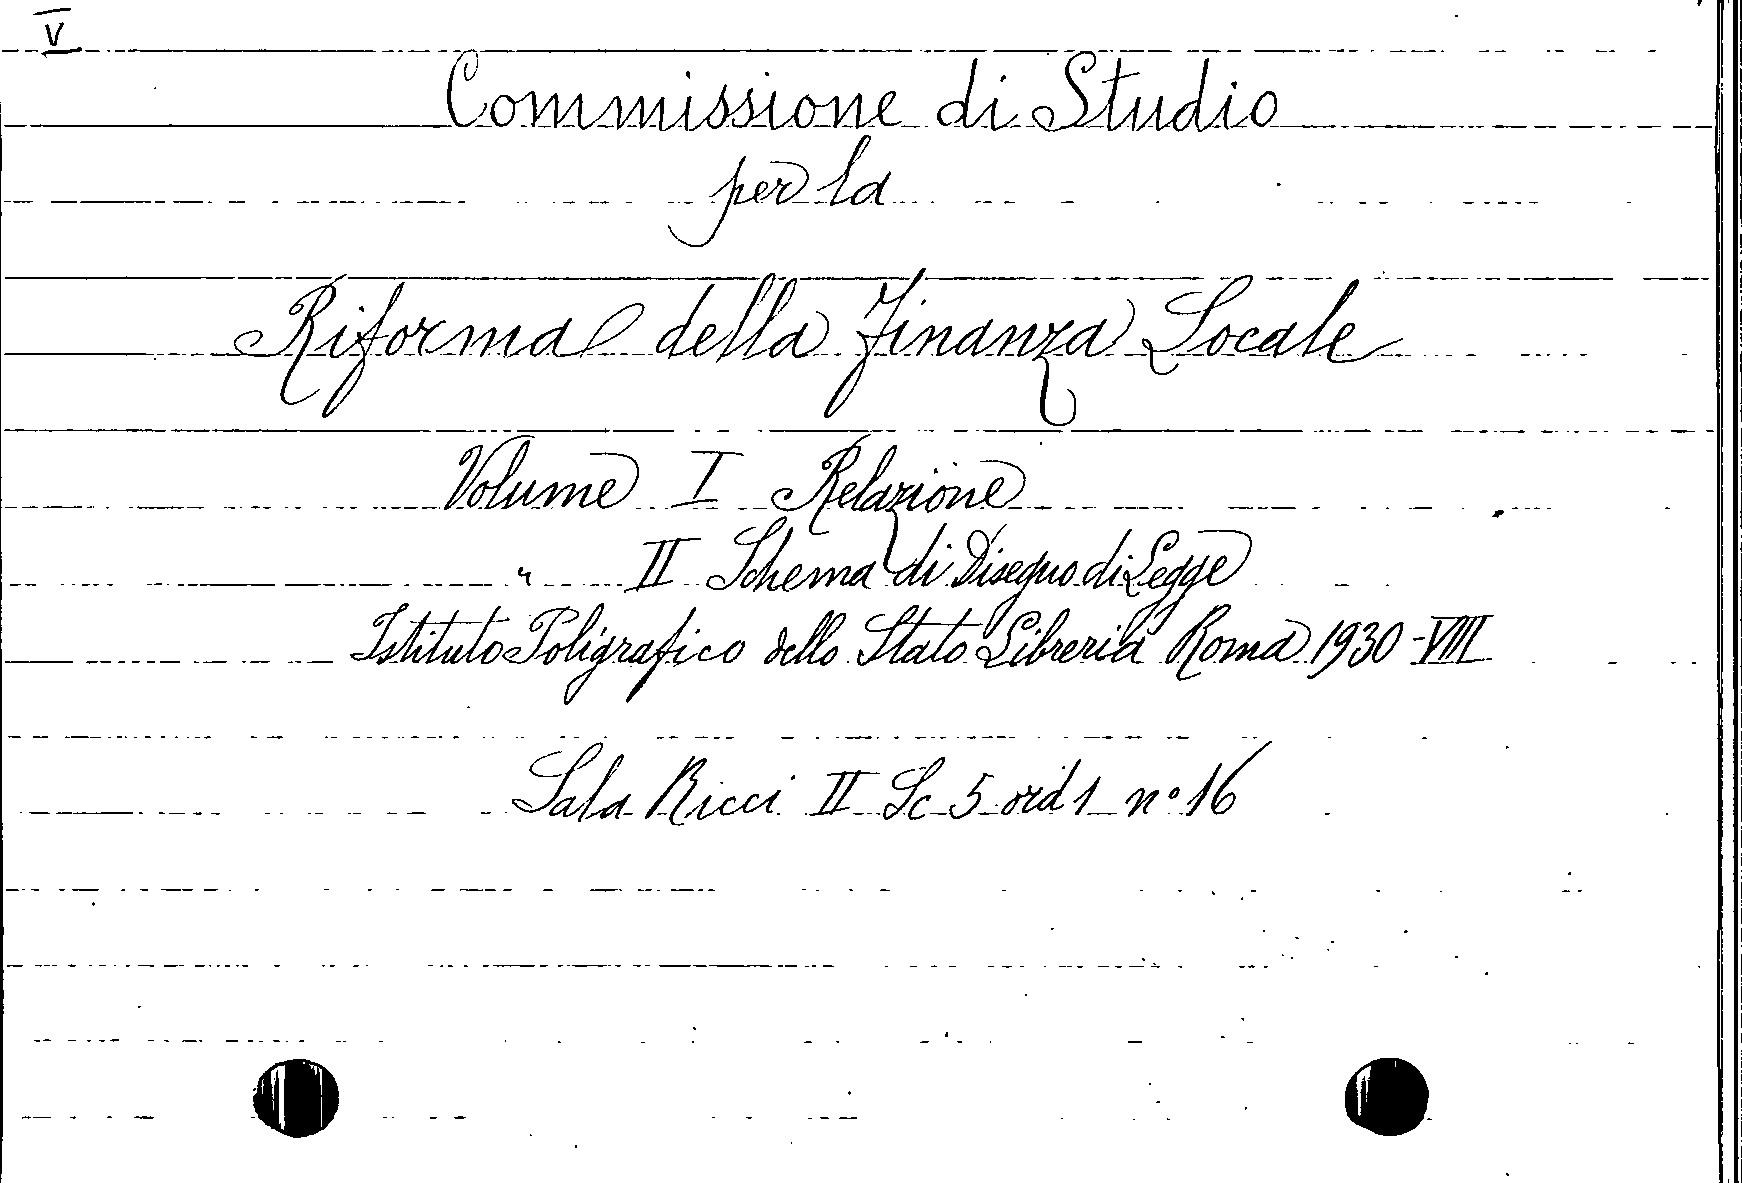 V
Commissione di Studio
per la
Riforma della Finanza Locale
Volume I Relazione
" II Schema di Disegno di Legge
Istituto Poligrafico dello Stato Libreria Roma 1930-VIII
Sala Ricci II Sc 5 ord 1 n° 16